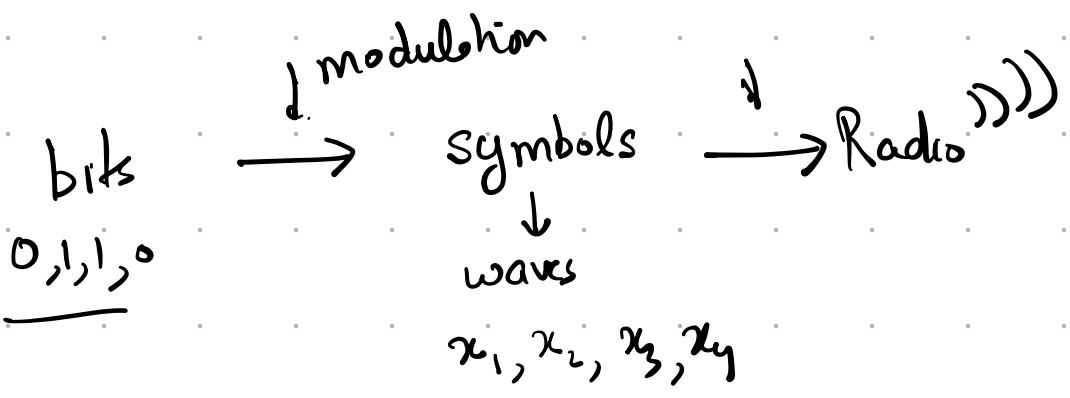 modulation
bits → symbols → Radio
0,1,1,0
↓
waves
x₁, x₂, x₃, x₄